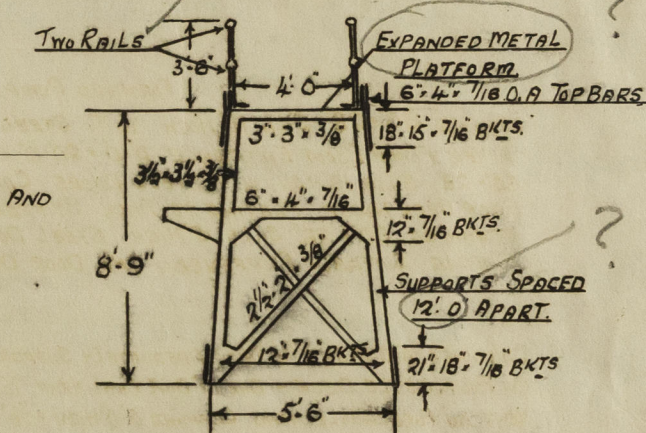 TWO RAILS
EXPANDED METAL
PLATFORM.
3'-6"
4'-0"
6" × 4" × 7/16 O.A TOP BARS
3" × 3" × 3/8"
18" × 15" × 7/16" BKTS.
3½" × 3½" × 3/8
AND
6" × 4" × 7/16"
12" × 7/16" BKTS.
8'-9"
2½" × 2" × 3/8"
SUPPORTS SPACED
12'.0 APART.
12" × 7/16" BKTS
21" × 18" × 7/16" BKTS
5'-6"
?
?